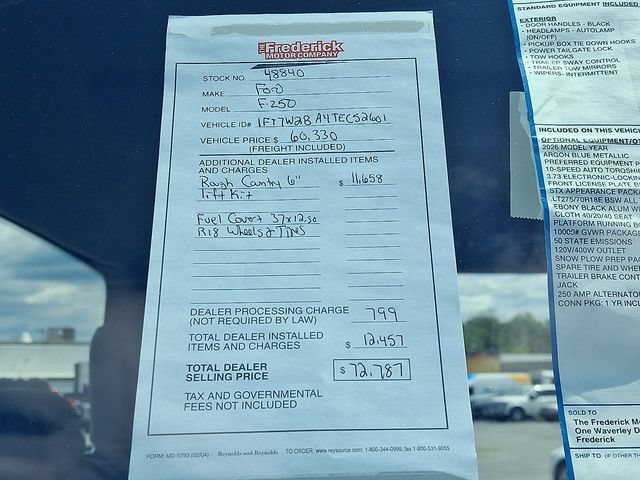 THE Frederick
MOTOR COMPANY
STOCK NO. 48840
MAKE Ford
MODEL F-250
VEHICLE ID# 1FT7W2BA4TEC52661
VEHICLE PRICE $ 60,330
(FREIGHT INCLUDED)
ADDITIONAL DEALER INSTALLED ITEMS
AND CHARGES
Rough Country 6" $ 11,658
lift Kit
Fuel Covert 37x12.50
R18 Wheels & Tires
DEALER PROCESSING CHARGE
(NOT REQUIRED BY LAW) 799
TOTAL DEALER INSTALLED
ITEMS AND CHARGES $ 12,457
TOTAL DEALER
SELLING PRICE $ 72,787
TAX AND GOVERNMENTAL
FEES NOT INCLUDED
FORM: MD-5793 (02/04) Reynolds and Reynolds TO ORDER: www.reysource.com; 1-800-344-0996; fax 1-800-531-9055
STANDARD EQUIPMENT INCLUDED
EXTERIOR
• DOOR HANDLES - BLACK
• HEADLAMPS - AUTOLAMP
(ON/OFF)
• PICKUP BOX TIE DOWN HOOKS
• POWER TAILGATE LOCK
• TOW HOOKS
• TRAILER SWAY CONTROL
• TRAILER TOW MIRRORS
• WIPERS- INTERMITTENT
INCLUDED ON THIS VEHIC
OPTIONAL EQUIPMENT/O
2026 MODEL YEAR
ARGON BLUE METALLIC
PREFERRED EQUIPMENT P
10-SPEED AUTO TORQSHI
3.73 ELECTRONIC-LOCKIN
FRONT LICENSE PLATE B
STX APPEARANCE PACK
.LT275/70R18E BSW ALL
.EBONY BLACK ALUM W
.CLOTH 40/20/40 SEAT
PLATFORM RUNNING B
10009# GVWR PACKAGE
50 STATE EMISSIONS
120V/400W OUTLET
SNOW PLOW PREP PA
SPARE TIRE AND WHE
TRAILER BRAKE CONT
JACK
250 AMP ALTERNATO
CONN PKG: 1 YR INCL
SOLD TO
The Frederick M
One Waverley D
Frederick
SHIP TO (IF OTHER TH